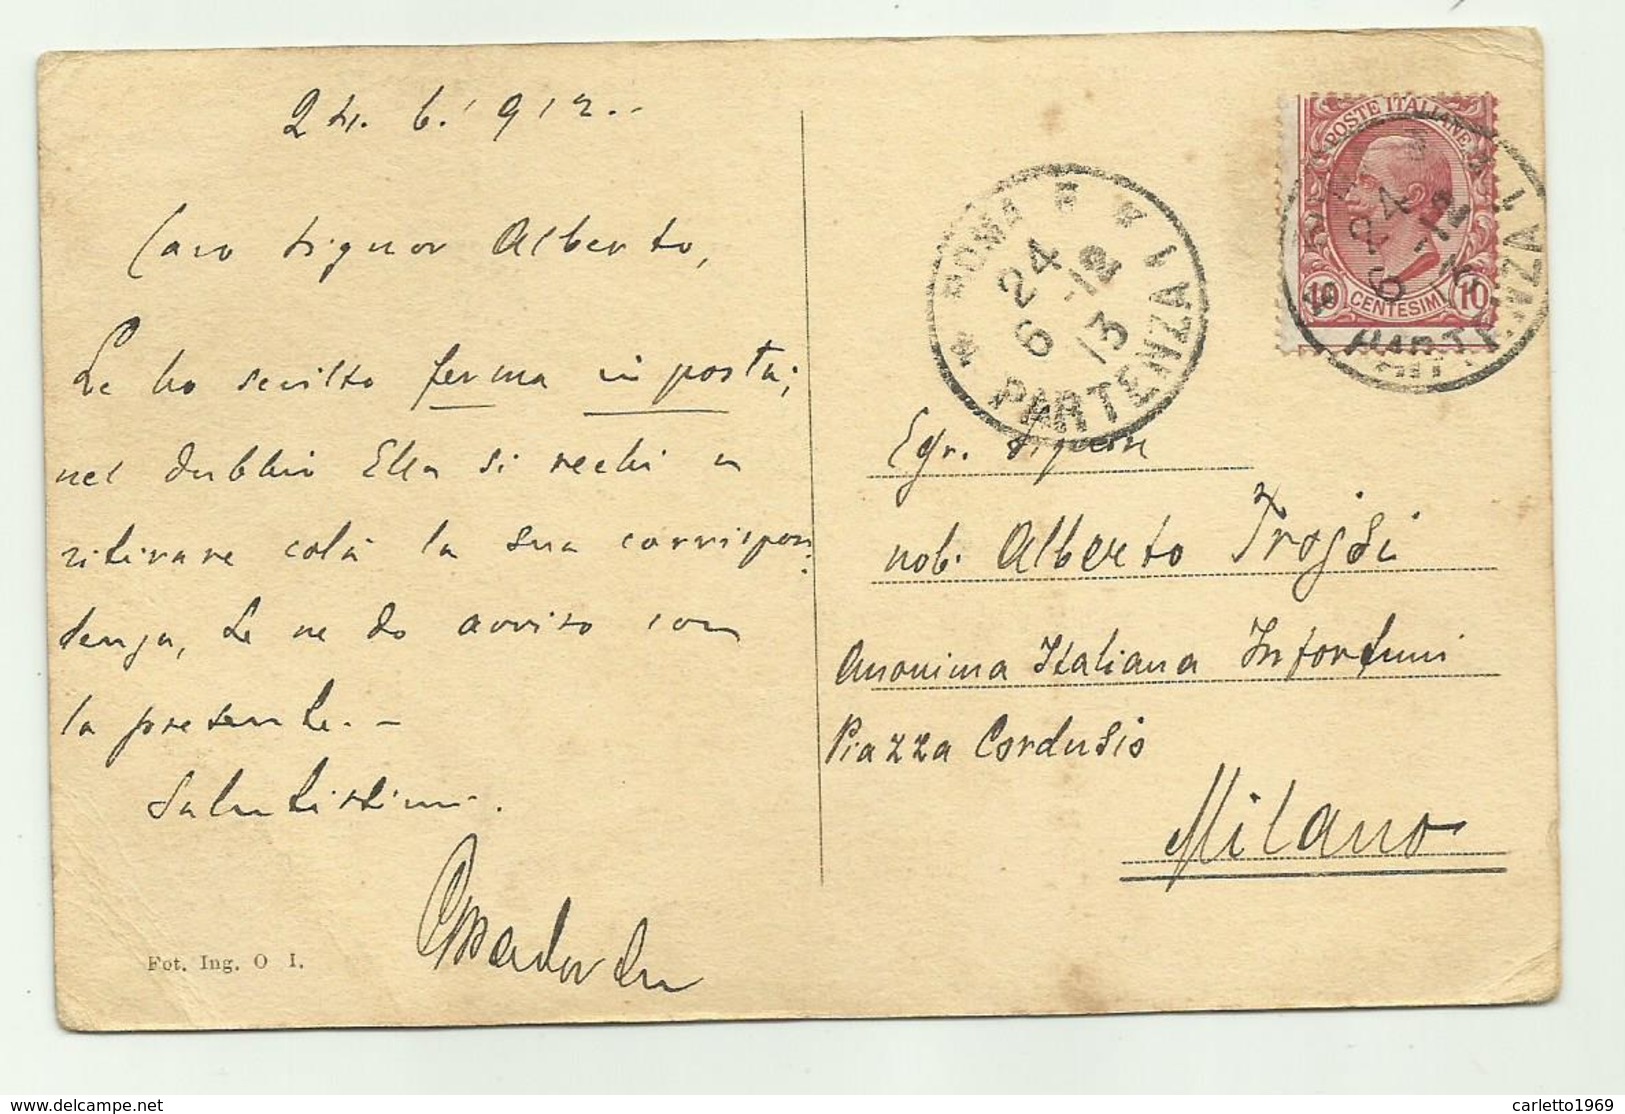 24. 6. 912. -
Caro Signor Alberto,
Le ho scritto ferma in posta;
nel dubbio Ella si rechi a
ritirare colà la sua corrispon
denza, Le ne do avviso con
la presente. -
Salutissimi.
Fot. Ing. O I.
ROMA
24
6 -12
13
PARTENZA
POSTE ITALIANE
10 CENTESIMI 10
24
6 -12
PARTENZA
Egr. Signore
nob. Alberto
Anonima Italiana Infortuni
Piazza Cordusio
Milano
carletto1969
www.delcampe.net